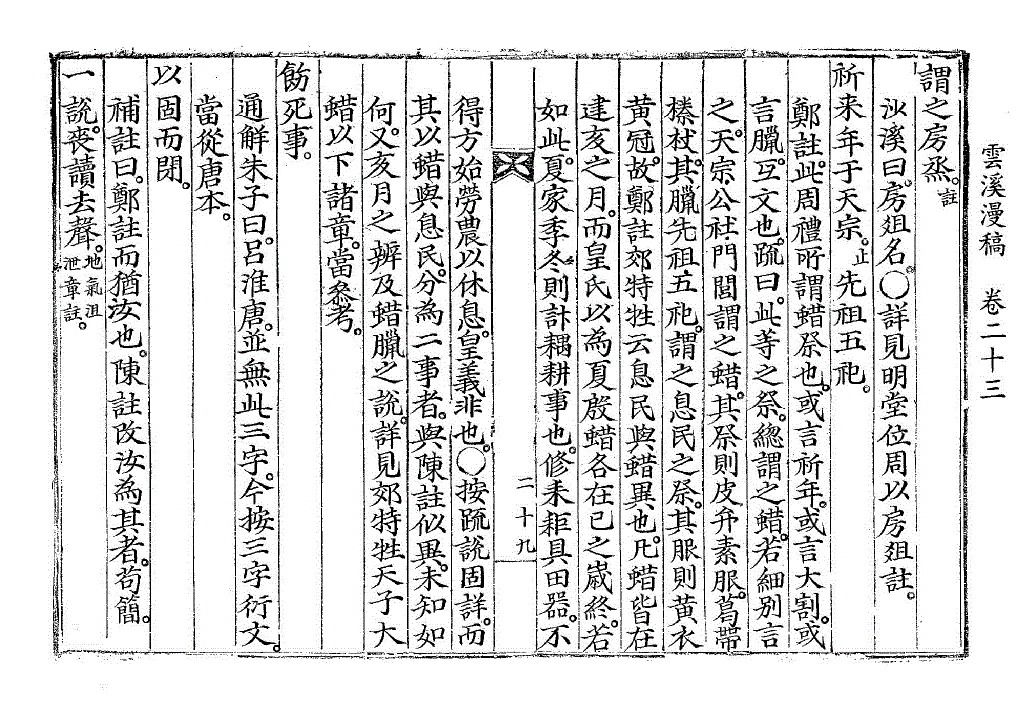 雲溪漫稿　卷二十三
謂之房烝。註
沙溪曰。房俎名。○詳見明堂位周以房俎註。
祈来年于天宗。止先祖五祀。
鄭註。此周禮所謂蜡祭也。或言祈年。或言大割。或
言臘。互文也。疏曰。此等之祭。緫謂之蜡。若細別言
之。天宗公社門閭謂之蜡。其祭則皮弁素服。葛帶
榛杖。其臘先祖五祀。謂之息民之祭。其服則黃衣
黃冠。故鄭註郊特牲云息民與蜡異也。凡蜡皆在
建亥之月。而皇氏以為夏殷蜡各在己之歲終。若
如此。夏家季冬則計耦耕事也。修耒耟具田器。不
二十九
得方始勞農以休息。皇義非也。○按疏說固詳。而
其以蜡與息民。分為二事者。與陳註似異。未知如
何。又亥月之辨及蜡臘之說。詳見郊特牲天子大
蜡以下諸章。當叅考。
飭死事。
通解朱子曰。呂淮唐。並無此三字。今按三字衍文。
當從唐本。
以固而閉。
補註曰。鄭註而猶汝也。陳註改汝為其者。苟簡。
一說。喪讀去聲。地氣沮泄章註。